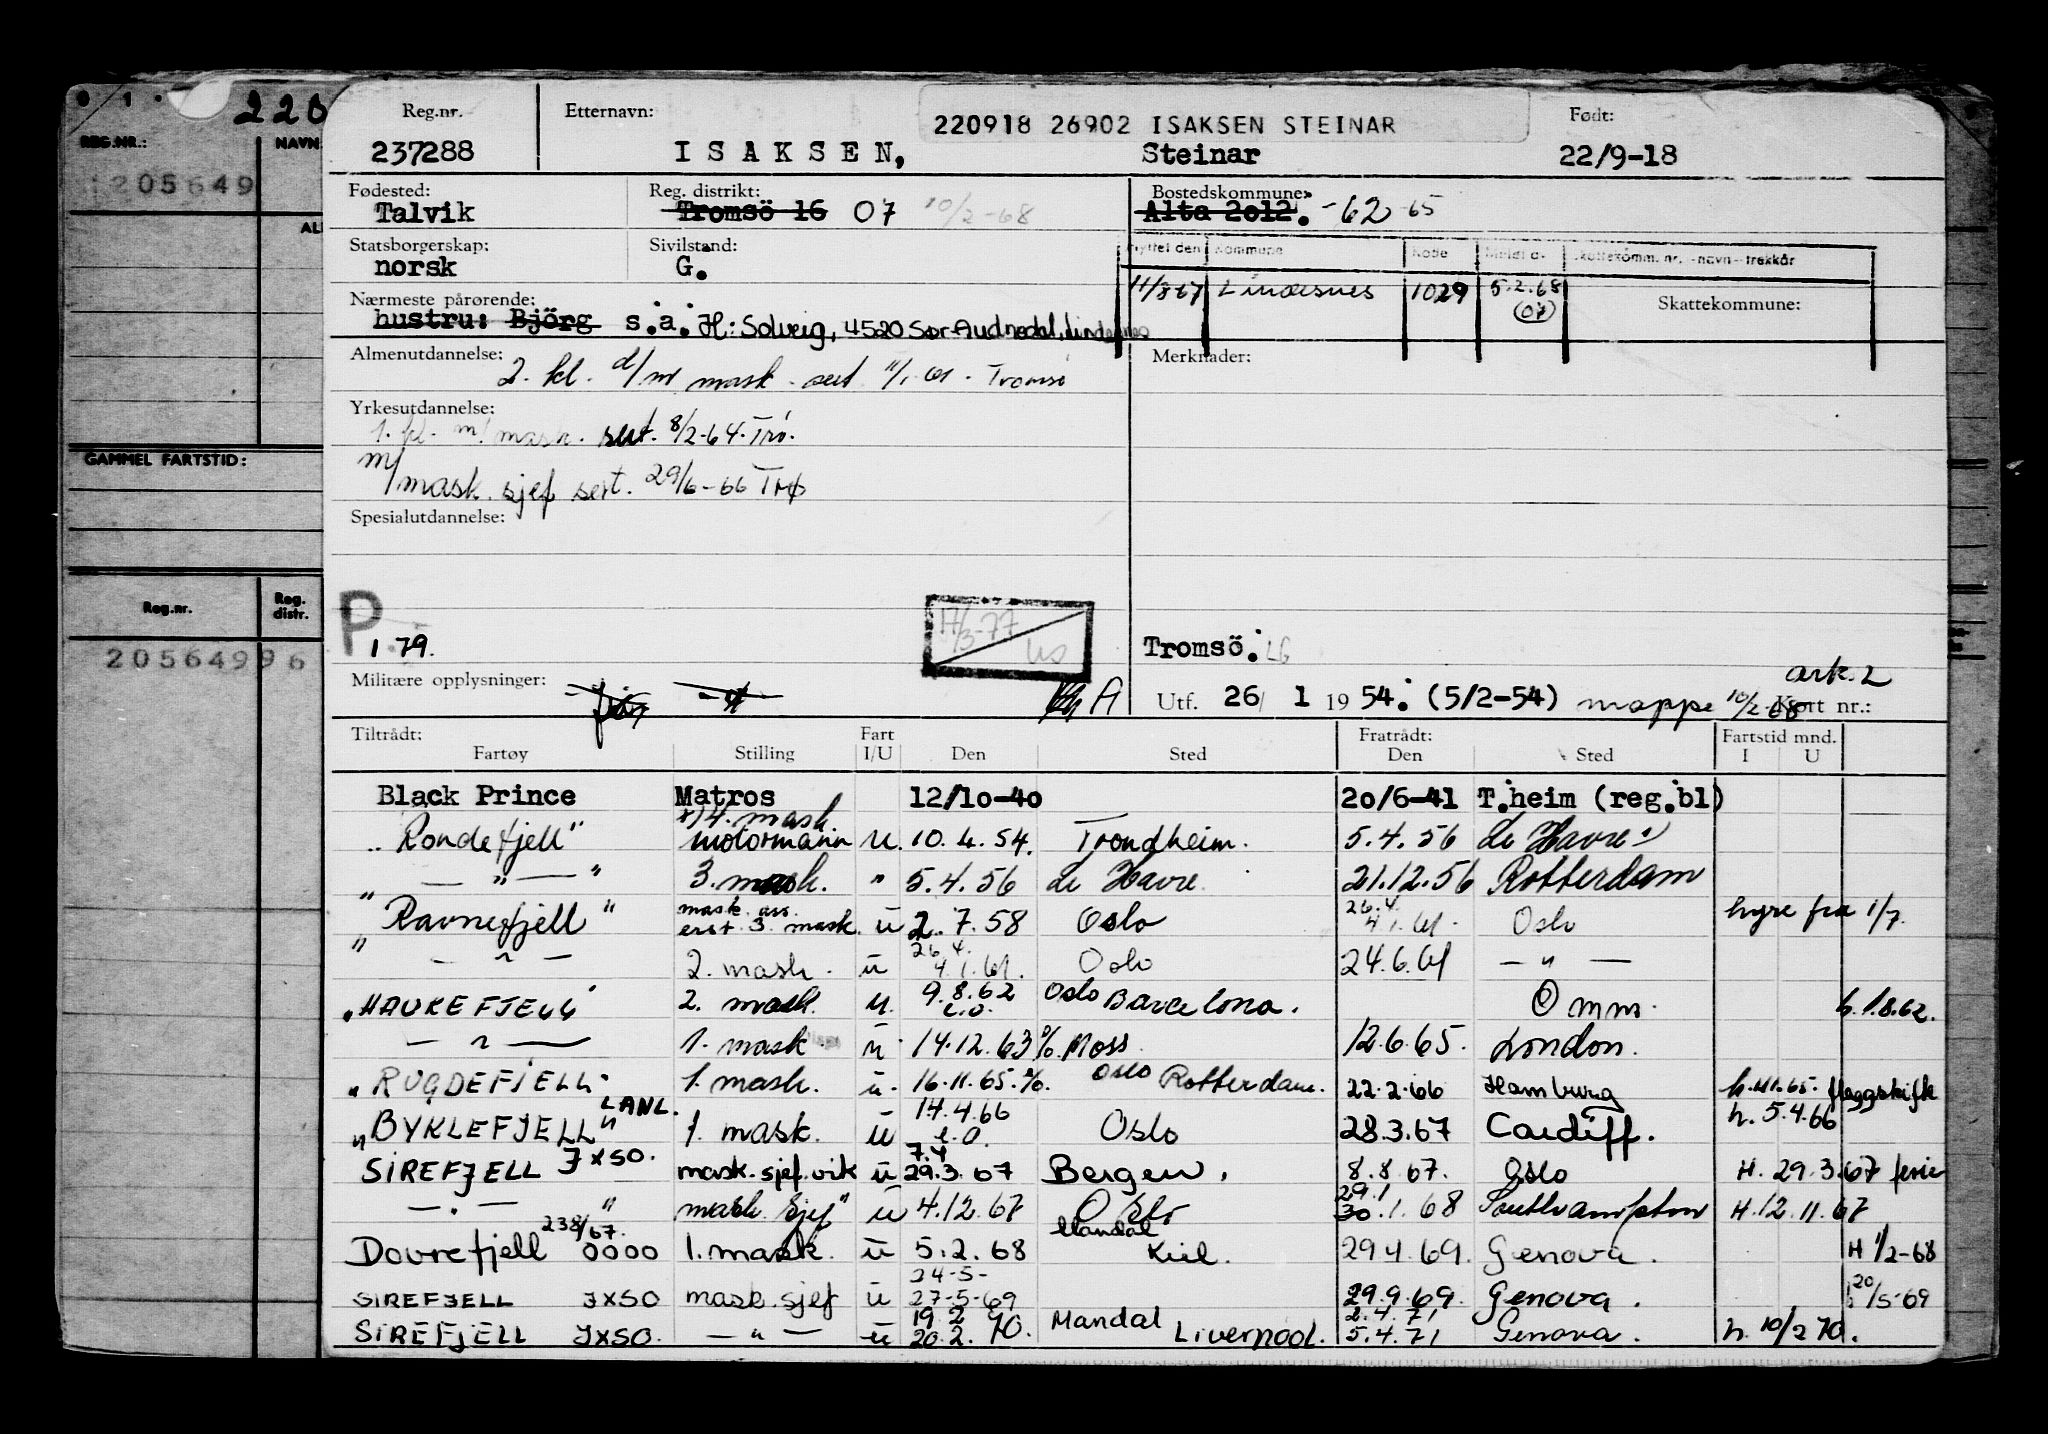 220
REG.NR.: NAVN
205649
AL
GAMMEL FARTSTID:
Reg.nr. Reg. distr.
205649 96
Reg.nr. Etternavn: 220918 26902 ISAKSEN STEINAR Født:
237288 ISAKSEN, Steinar 22/9-18
Fødested: Reg. distrikt: Bostedskommune:
Talvik Tromsö 16 07 10/2-68 Alta 2012. -62-65
Statsborgerskap: Sivilstand: Flyttet den Kommune Kode Meldt d. Skattekomm. nr. -navn- trekkår
norsk G. 11/8-67 Lindesnes 1029 5.2.68 (07) Skattekommune:
Nærmeste pårørende:
hustru: Björg s.a. H: Solveig, 4520 Sør-Audnedal, Lindesnes
Almenutdannelse: Merknader:
2. kl. d/m mask. sert 11/1-61. Tromsø
Yrkesutdannelse:
1. kl. m/ mask. sert. 8/2-64. Trø.
m/mask. sjef sert. 29/6-66 Trø
Spesialutdannelse:
P.
1 79. 17/3-77 Tromsö.
Militære opplysninger: ark. 2
A Utf. 26/ 1 1954. (5/2-54) mappe 10/2-68 Kort nr.:
Tiltrådt: Fart Fratrådt: Fartstid mnd.
Fartøy Stilling I/U Den Sted Den Sted I U
Black Prince Matros 12/10-40 20/6-41 T.heim (reg.bl)
"Rondefjell" x) 4. mask motormann u. 10.4.54. Trondheim. 5.4.56 Le Havre
" — " — " 3. mask. " 5.4.56 Le Havre. 21.12.56 Rotterdam
"Ravnefjell" mask. ass. erst. 3. mask. u 2.7.58 Oslo 26.4 4.1.61. Oslo hyre fra 1/7.
" — " — 2. mask. u 26.4. 4.1.61. Oslo 24.6.61 — " —
"HAUKEFJELL" 2. mask. u. 9.8.62 e.o. Oslo Barcelona. O mm. h. 1.8.62.
— " — 1. mask. u 14.12.63 Moss 12.6.65. London.
"RUGDEFJELL" 1. mask. u. 16.11.65. Oslo Rotterdam. 22.2.66 Hamburg flaggskifte
"BYKLEFJELL" LANL. 1. mask. u 14.4.66 e.o. Oslo 28.3.67 Cardiff. h. 5.4.66
SIREFJELL JXSO. mask. sjef. vik u 7.4 29.3.67 Bergen. 8.8.67. Oslo H. 29.3.67 ferie
— " — " mask. Sjef" u 4.12.67 Oslo 29.1 30.1.68 Southampton H. 12.11.67
Dovrefjell 238/67. 0000 1. mask. u 5.2.68 Mandal Kiel. 29.4.69. Genova. H 1/2-68
SIREFJELL JXSO mask. sjef u 24-5- 27-5-69 29.9.69. Genova. h 20/5-69
SIREFJELL JXSO. — " — u 19.2 20.2.70. Mandal Liverpool. 2.4.71 5.4.71 Genova. h. 10/2 70.